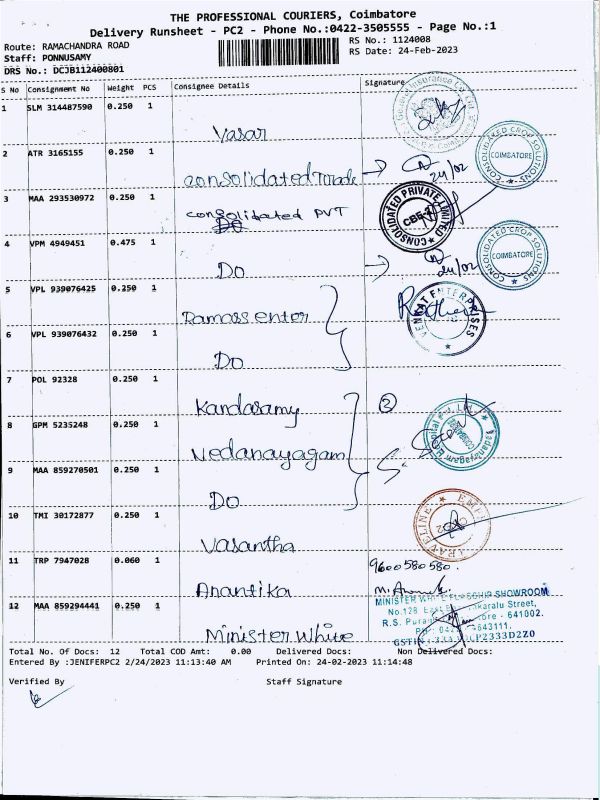 THE PROFESSIONAL COURIERS, Coimbatore
Delivery Runsheet - PC2 - Phone No.:0422-3505555 - Page No.:1
Route: RAMACHANDRA ROAD
RS No.: 1124008
Staff: PONNUSAMY
RS Date: 24-Feb-2023
DRS No.: DCJB112400801
S No Consignment No Weight PCS Consignee Details Signature
1 SLM 314487590 0.250 1
Vasar
2 ATR 3165155 0.250 1
COIMBATORE
CONSOLIDATED CROP SOLUTIONS
consolidated Trade
24/02
3 MAA 293530972 0.250 1
consolidated PVT
Do
CONSOLIDATED PRIVATE LIMITED
4 VPM 4949451 0.475 1
COIMBATORE
CONSOLIDATED CROP SOLUTIONS
Do
24/02
5 VPL 939076425 0.250 1
Ramass enter
VENKAT ENTERPRISES
6 VPL 939076432 0.250 1
Do
7 POL 92328 0.250 1
Kandasamy
2
8 GPM 5235248 0.250 1
Vedanayagam
9 MAA 859270501 0.250 1
Do
10 TMI 30172877 0.250 1
Vasantha
11 TRP 7947028 0.060 1
9600580580.
Anantika
12 MAA 859294441 0.250 1
MINISTER WHITE FLAGSHIP SHOWROOM
No.128 Street,
R.S. 641002.
Minister White
Total No. Of Docs: 12 Total COD Amt: 0.00 Delivered Docs: Non Delivered Docs:
Entered By :JENIFERPC2 2/24/2023 11:13:40 AM Printed On: 24-02-2023 11:14:48
Verified By Staff Signature